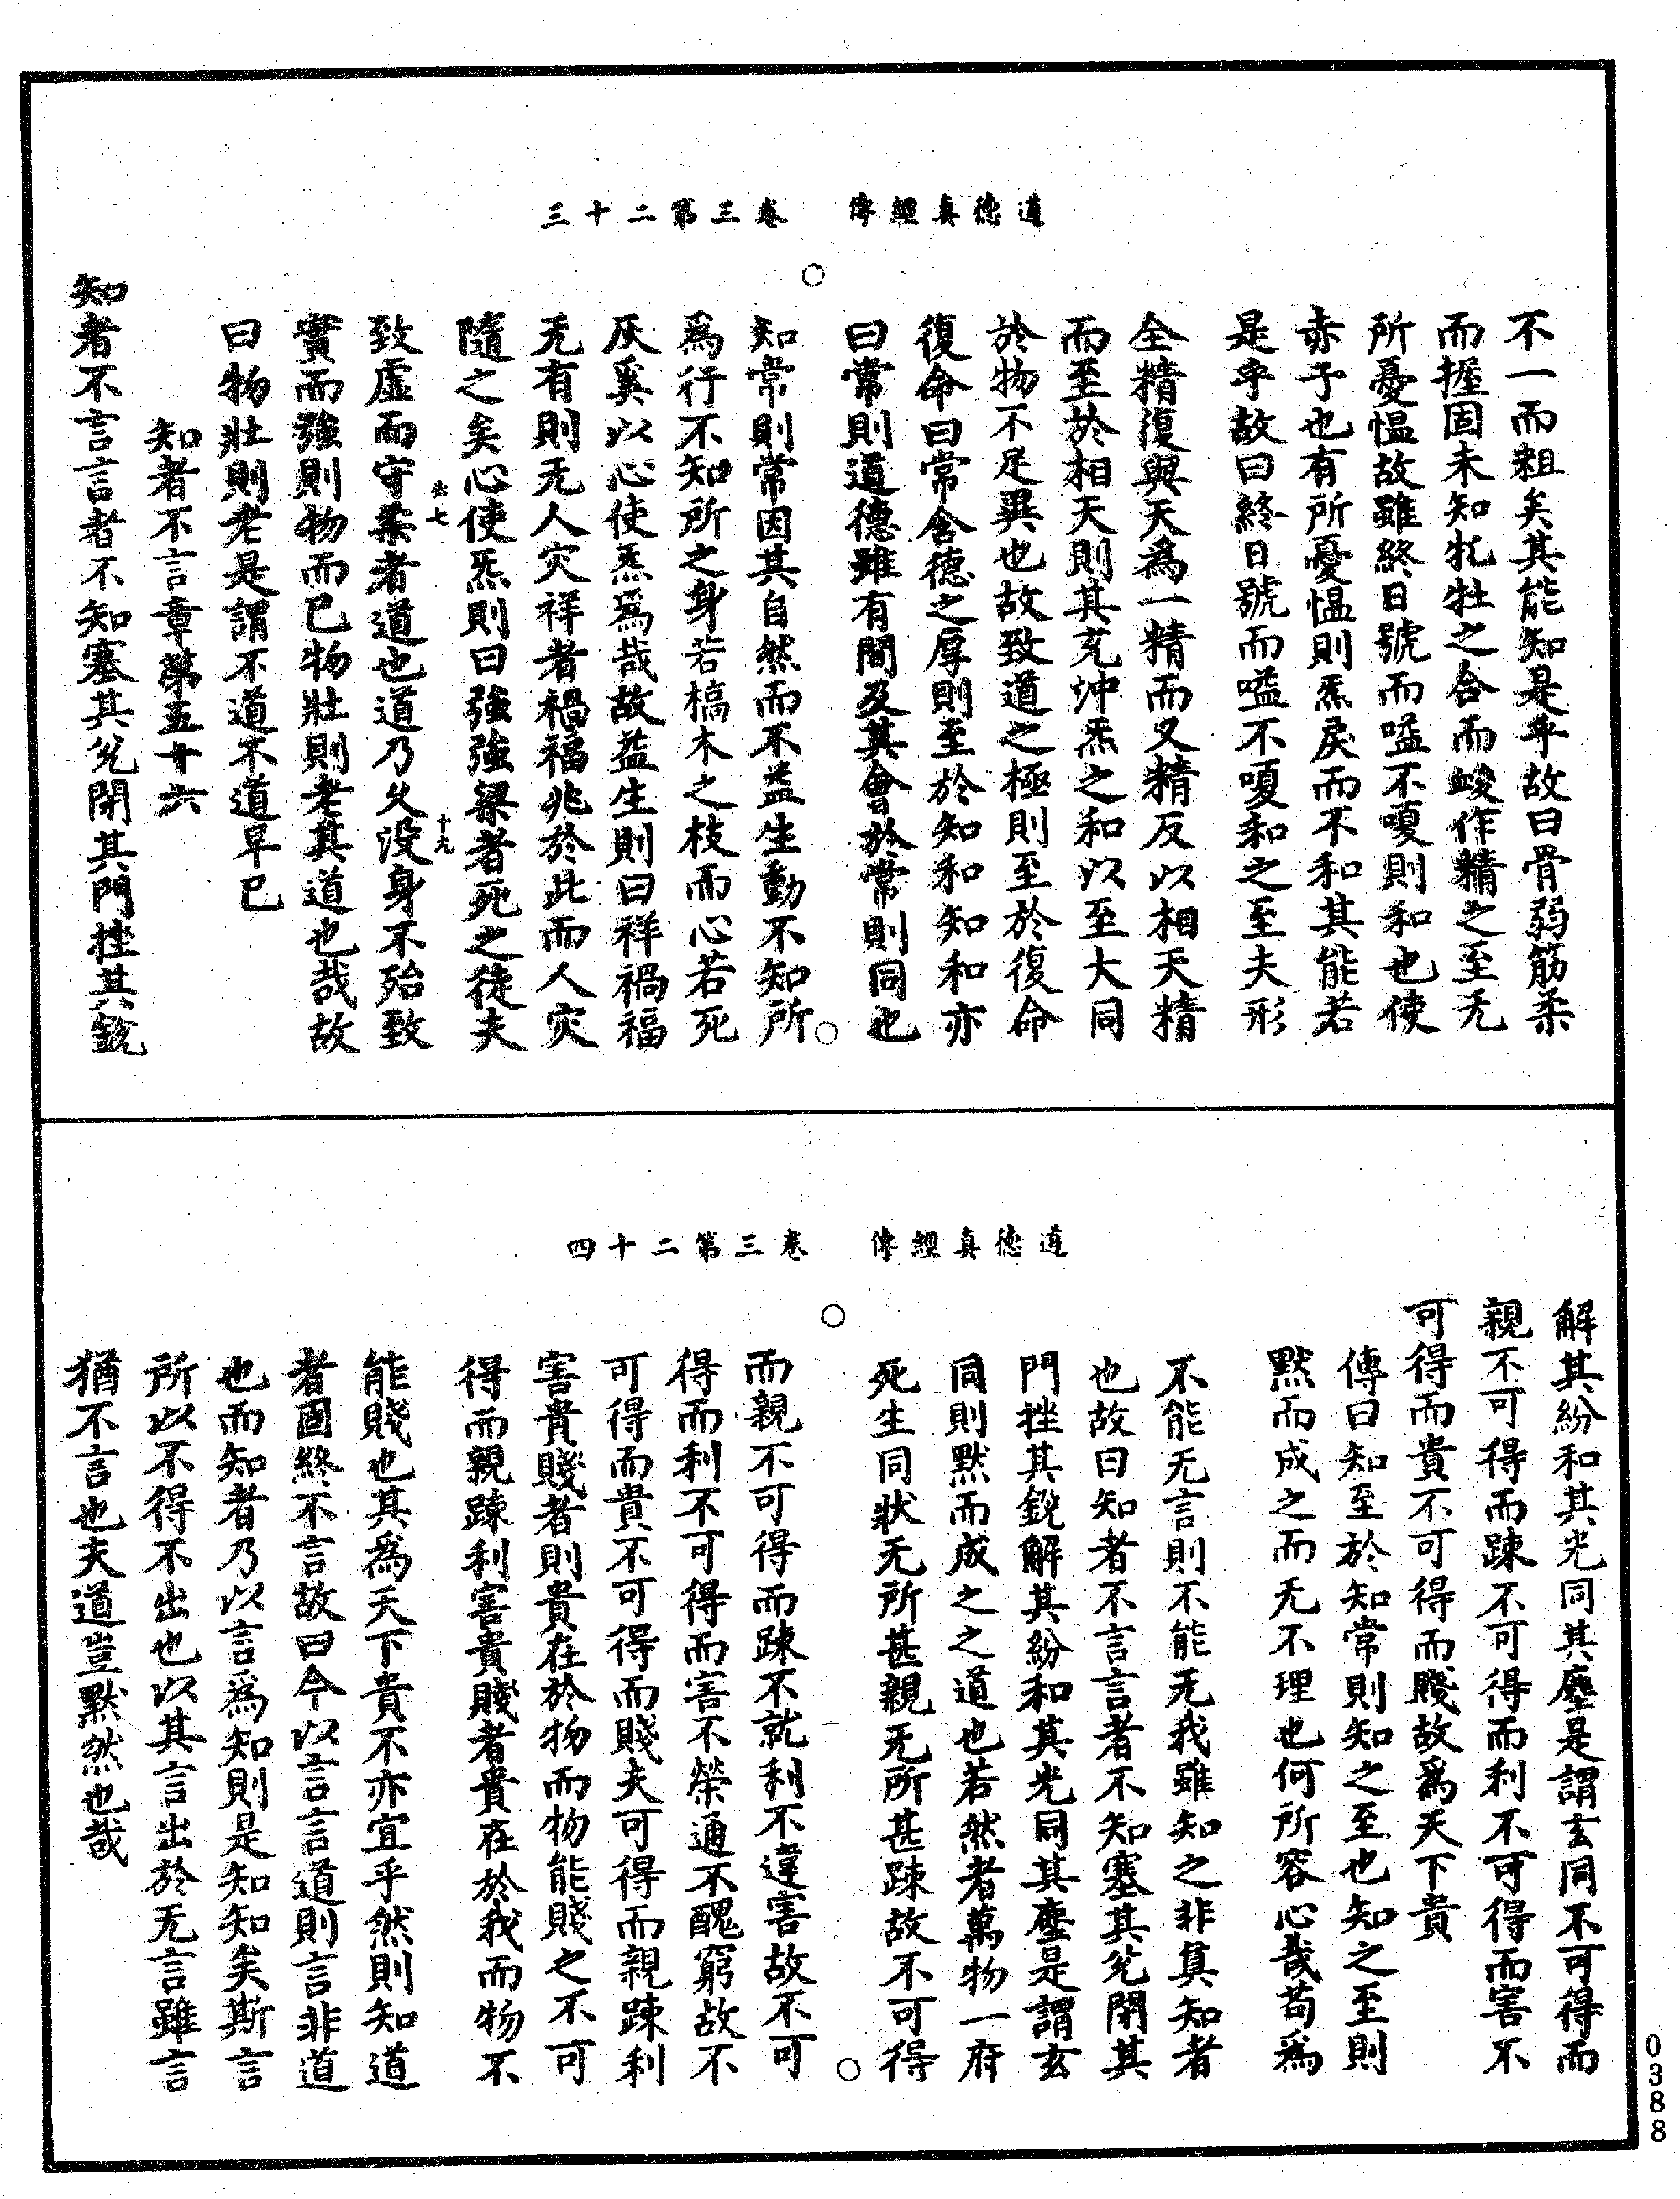 道德真經傳　卷三第二十三
不一而粗矣其能知是乎故曰骨弱筋柔
而握固未知牝牡之合而峻作精之至无
所憂慍故雖終日號而嗌不嗄則和也使
赤子也有所憂慍則炁戾而不和其能若
是乎故曰終日號而嗌不嗄和之至夫形
全精復與天為一精而又精反以相天精
而至於相天則其充沖炁之和以至大同
於物不足異也故致道之極則至於復命
復命曰常含德之厚則至於知和知和亦
曰常則道德雖有間及其會於常則同也
知常則常因其自然而不益生動不知所
為行不知所之身若槁木之枝而心若死
灰奚以心使炁為哉故益生則曰祥禍福
无有則无人灾祥者禍福兆於此而人灾
隨之矣心使炁則曰強強梁者死之徒夫
必七　十九
致虛而守柔者道也道乃久没身不殆致
實而強則物而已物壯則老其道也哉故
曰物壯則老是謂不道不道早已
知者不言章第五十六
知者不言言者不知塞其兊閉其門挫其銳
道德真經傳　卷三第二十四
解其紛和其光同其塵是謂玄同不可得而
親不可得而踈不可得而利不可得而害不
可得而貴不可得而賤故為天下貴
傳曰知至於知常則知之至也知之至則
默而成之而无不理也何所容心哉苟為
不能无言則不能无我雖知之非真知者
也故曰知者不言言者不知塞其兊閉其
門挫其銳解其紛和其光同其塵是謂玄
同則默而成之之道也若然者萬物一府
死生同狀无所甚親无所甚踈故不可得
而親不可得而踈不就利不違害故不可
得而利不可得而害不榮通不醜窮故不
可得而貴不可得而賤夫可得而親踈利
害貴賤者則貴在於物而物能賤之不可
得而親踈利害貴賤者貴在於我而物不
能賤也其為天下貴不亦宜乎然則知道
者固終不言故曰今以言言道則言非道
也而知者乃以言為知則是知知矣斯言
所以不得不出也以其言出於无言雖言
猶不言也夫道豈默然也哉
0388